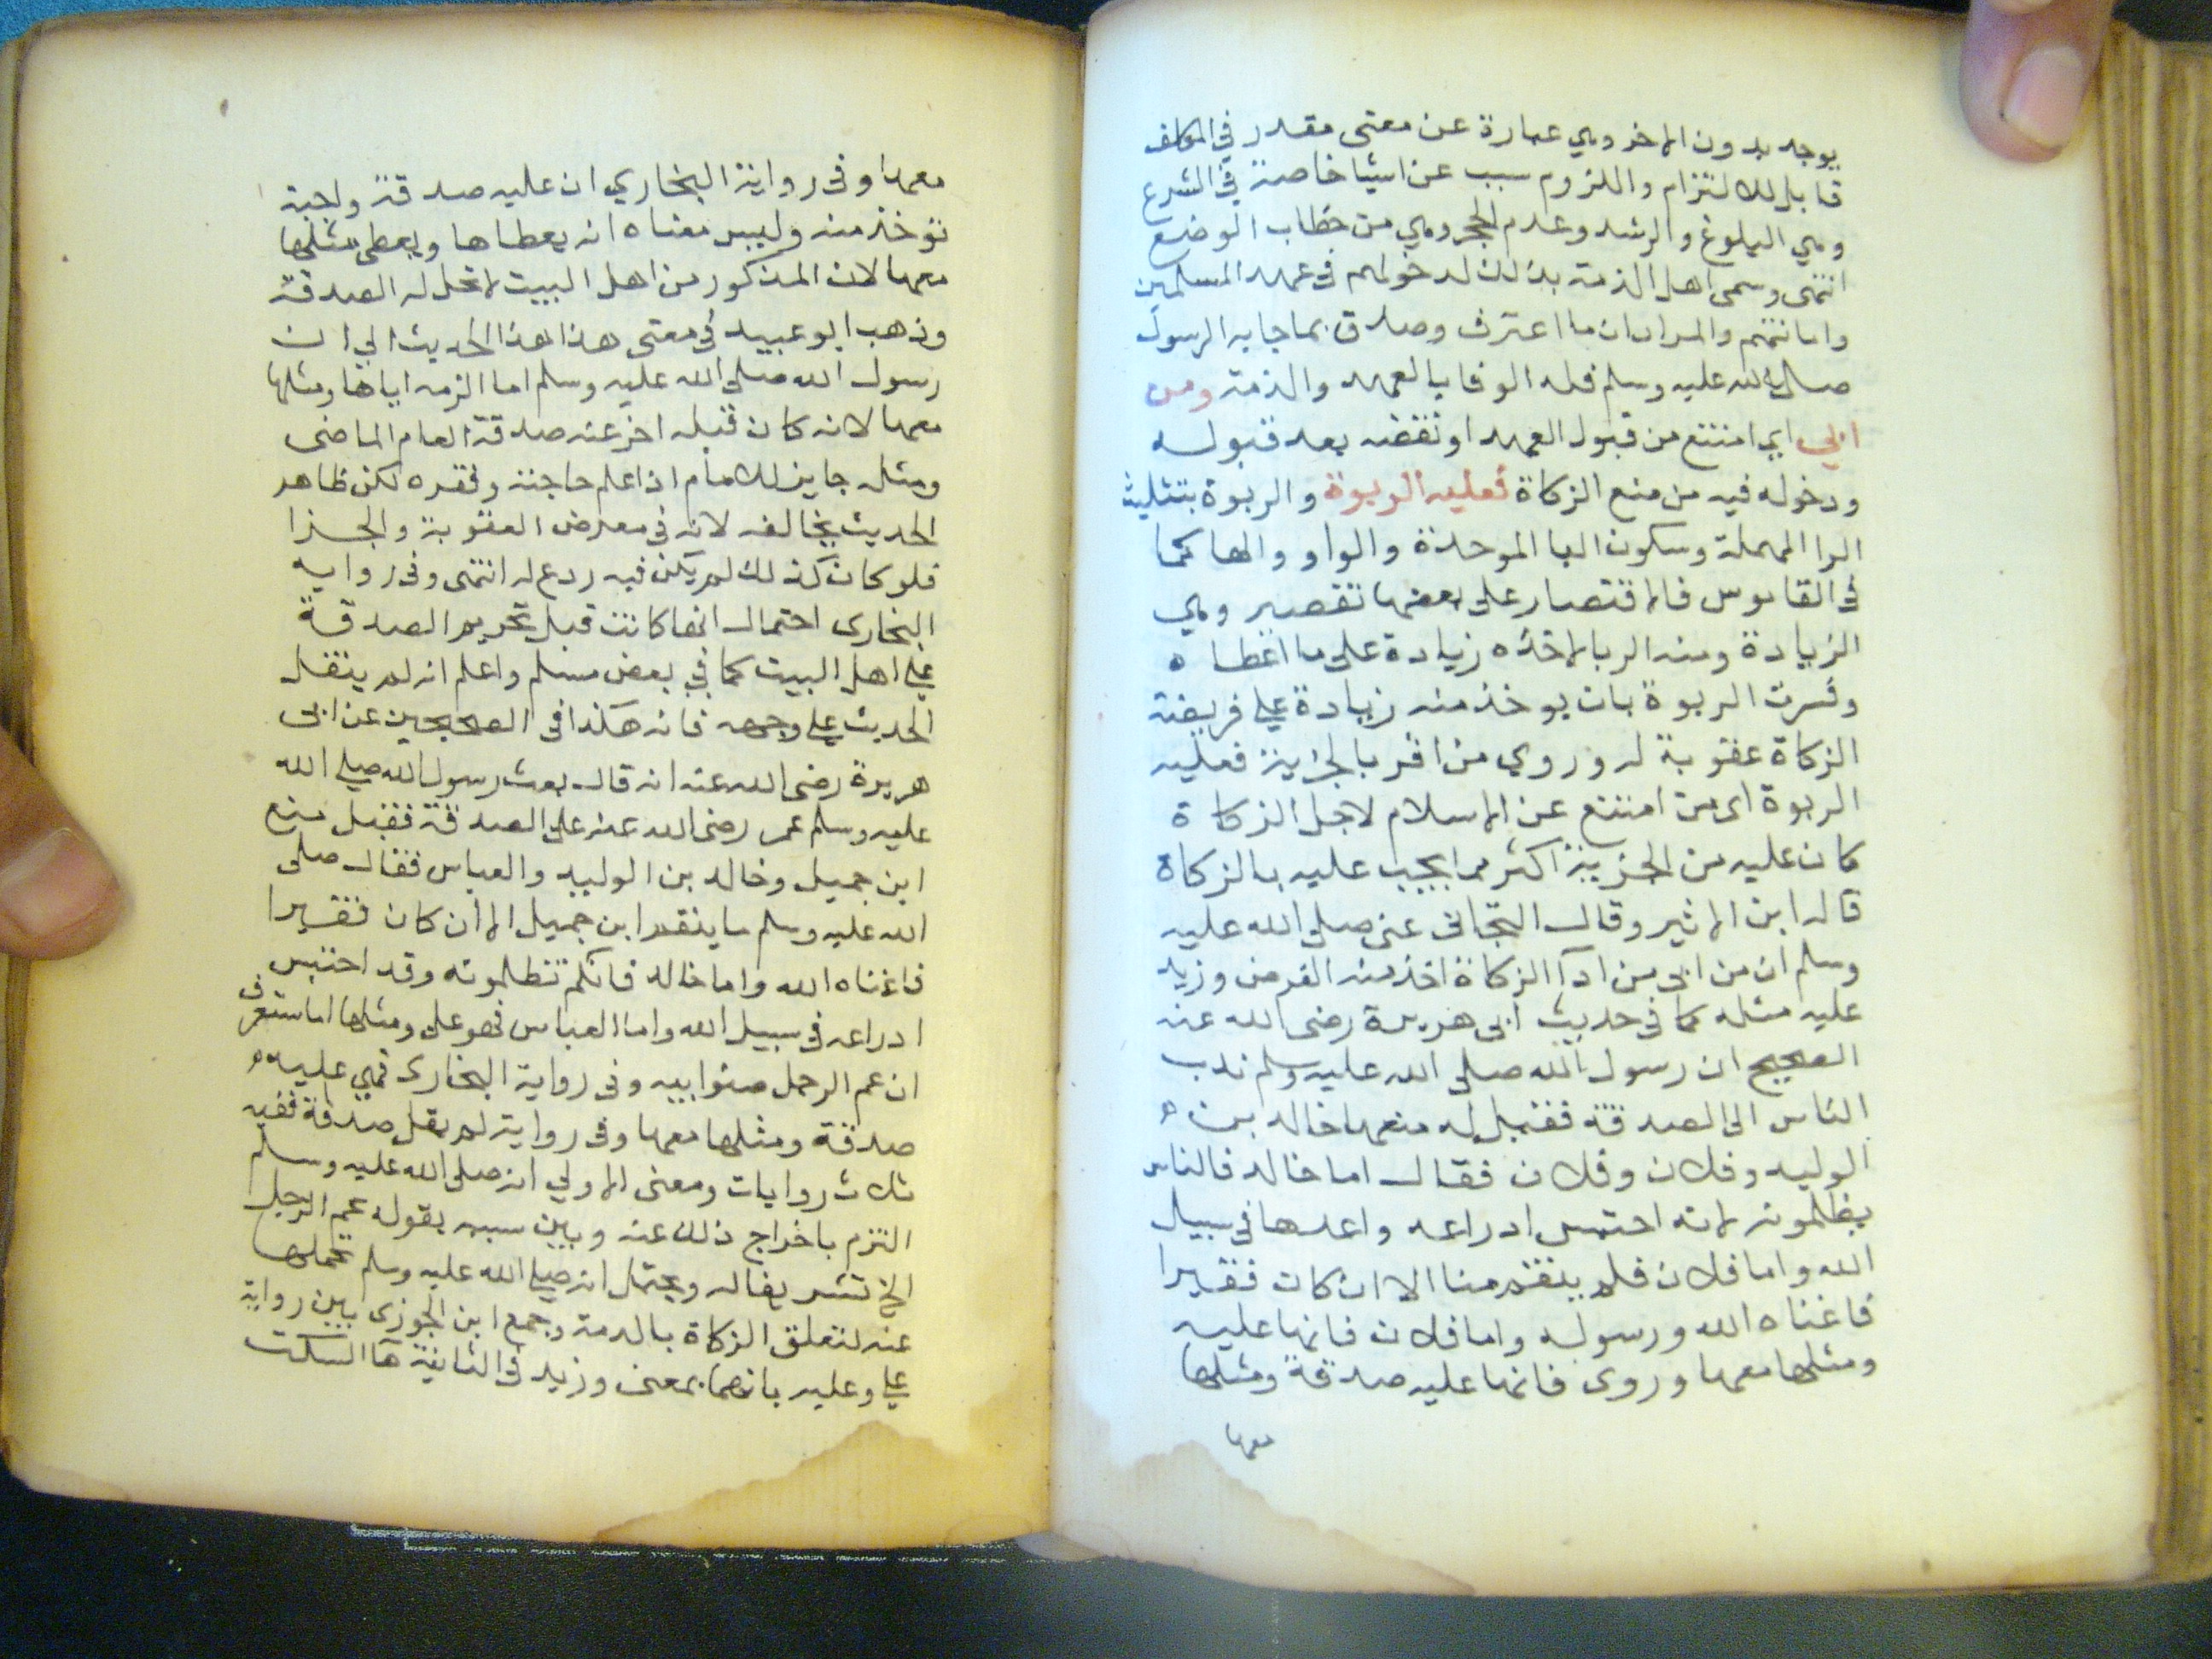 يوجد بدون الاخر وهي عبارة عن معنى مقدر في المكلف
قابل للالتزام واللزوم سبب عن اشيا خاصة في الشرع
وهي البلوغ والرشد وعدم الحجر وهي من خطاب الوضع
انتهى وسمى اهل الذمة بذلك لدخولهم في عهد المسلمين
وامانتهم والمراد ان ما اعترف وصدق بما جا به الرسول
صلى الله عليه وسلم فله الوفا بالعهد والذمة ومن
ابي اي امتنع من قبول العهد او نقضه بعد قبوله
ودخوله فيه من منع الزكاة فعليه الربوة والربوة بتثليث
الرا المهملة وسكون البا الموحدة والواو والها كما
في القاموس فالاقتصار على بعضها تقصير وهي
الزيادة ومنه الربا لاخذه زيادة على ما اعطاه
وفسرت الربوة بان يوخذ منه زيادة علي فريضة
الزكاة عقوبة له وروي من اقر بالجزية فعليه
الربوة اى من امتنع عن الاسلام لاجل الزكاة
كان عليه من الجزية اكثر مما يجب عليه بالزكاة
قاله ابن الاثير وقال التجانى عنى صلى الله عليه
وسلم ان من ابى من ادآ الزكاة اخذ منه الفرض وزيد
عليه مثله كما في حديث ابى هريرة رضى الله عنه
الصحيح ان رسول الله صلى الله عليه وسلم ندب
الناس الى الصدقة فقيل له منعها خالد بن ه
الوليد وفلان وفلان فقال اما خالد فالناس
يظلمونه لانه احتبس ادراعه واعدها في سبيل
الله واما فلان فلم ينقم منا الا ان كان فقيرا
فاغناه الله ورسوله واما فلان فانها عليه
ومثلها معها وروى فانها عليه صدقة ومثلها
معها
معها وفى رواية البخاري ان عليه صدقة واجبة
توخذ منه وليس معناه انه يعطاها ويعطى مثلها
معها لان المذكور من اهل البيت لا تحل له الصدقة
وذهب ابو عبيد في معتى هذا هذا الحديث الي ان
رسول الله صلى الله عليه وسلم اما الزمه اياها ومثلها
معها لانه كان قبله اخر عنه صدقة العام الماضى
ومثله جايز للامام اذا علم حاجته وفقره لكن ظاهر
الحديث يخالفه لانه في معرض العقوبة والجزا
فلو كان كذلك لم يكن فيه ردع له انتهى وفى رواية
البخارى احتمال انها كانت قبل تحريم الصدقة
علي اهل البيت كما في بعض مسلم واعلم انه لم ينقل
الحديث علي وجهه فانه هكذا في الصحيحين عن ابى
هريرة رضى الله عنه انه قال بعث رسول الله صلي الله
عليه وسلم عمر رضى الله عنه على الصدقة فقيل منع
ابن جميل وخالد بن الوليد والعباس فقال صلى
الله عليه وسلم ما ينقم ابن جميل الا أن كان فقيرا
فاغناه الله واما خالد فانكم تظلمونه وقد احتبس
ادراعه في سبيل الله واما العباس فهو على ومثلها اما ستعرف
ان عم الرجل صنوابيه وفى رواية البخارى فهي عليه ه
صدقة ومثلها معها وفى رواية لم يقل صدقة ففيه
ثلاث روايات ومعنى الاولي انه صلى الله عليه وسلم
التزم باخراج ذلك عنه وبين سببه بقوله عم الرجل
الخ تشريفا له ويحتمل انه صلي الله عليه وسلم تحملها
عنه لتعلق الزكاة بالذمة وجمع ابن الجوزى بين رواية
علي وعليه بانهما بمعنى وزيد في الثانية هآ السكت